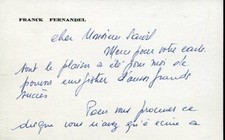 FRANCK FERNANDEL
cher Monsieur
Merci pour votre carte
tout le plaisir a été pour moi de
pouvoir enregistrer d'aussi grands
succès
Pour vous procurer ce
disque vous n'avez qu'à écrire à